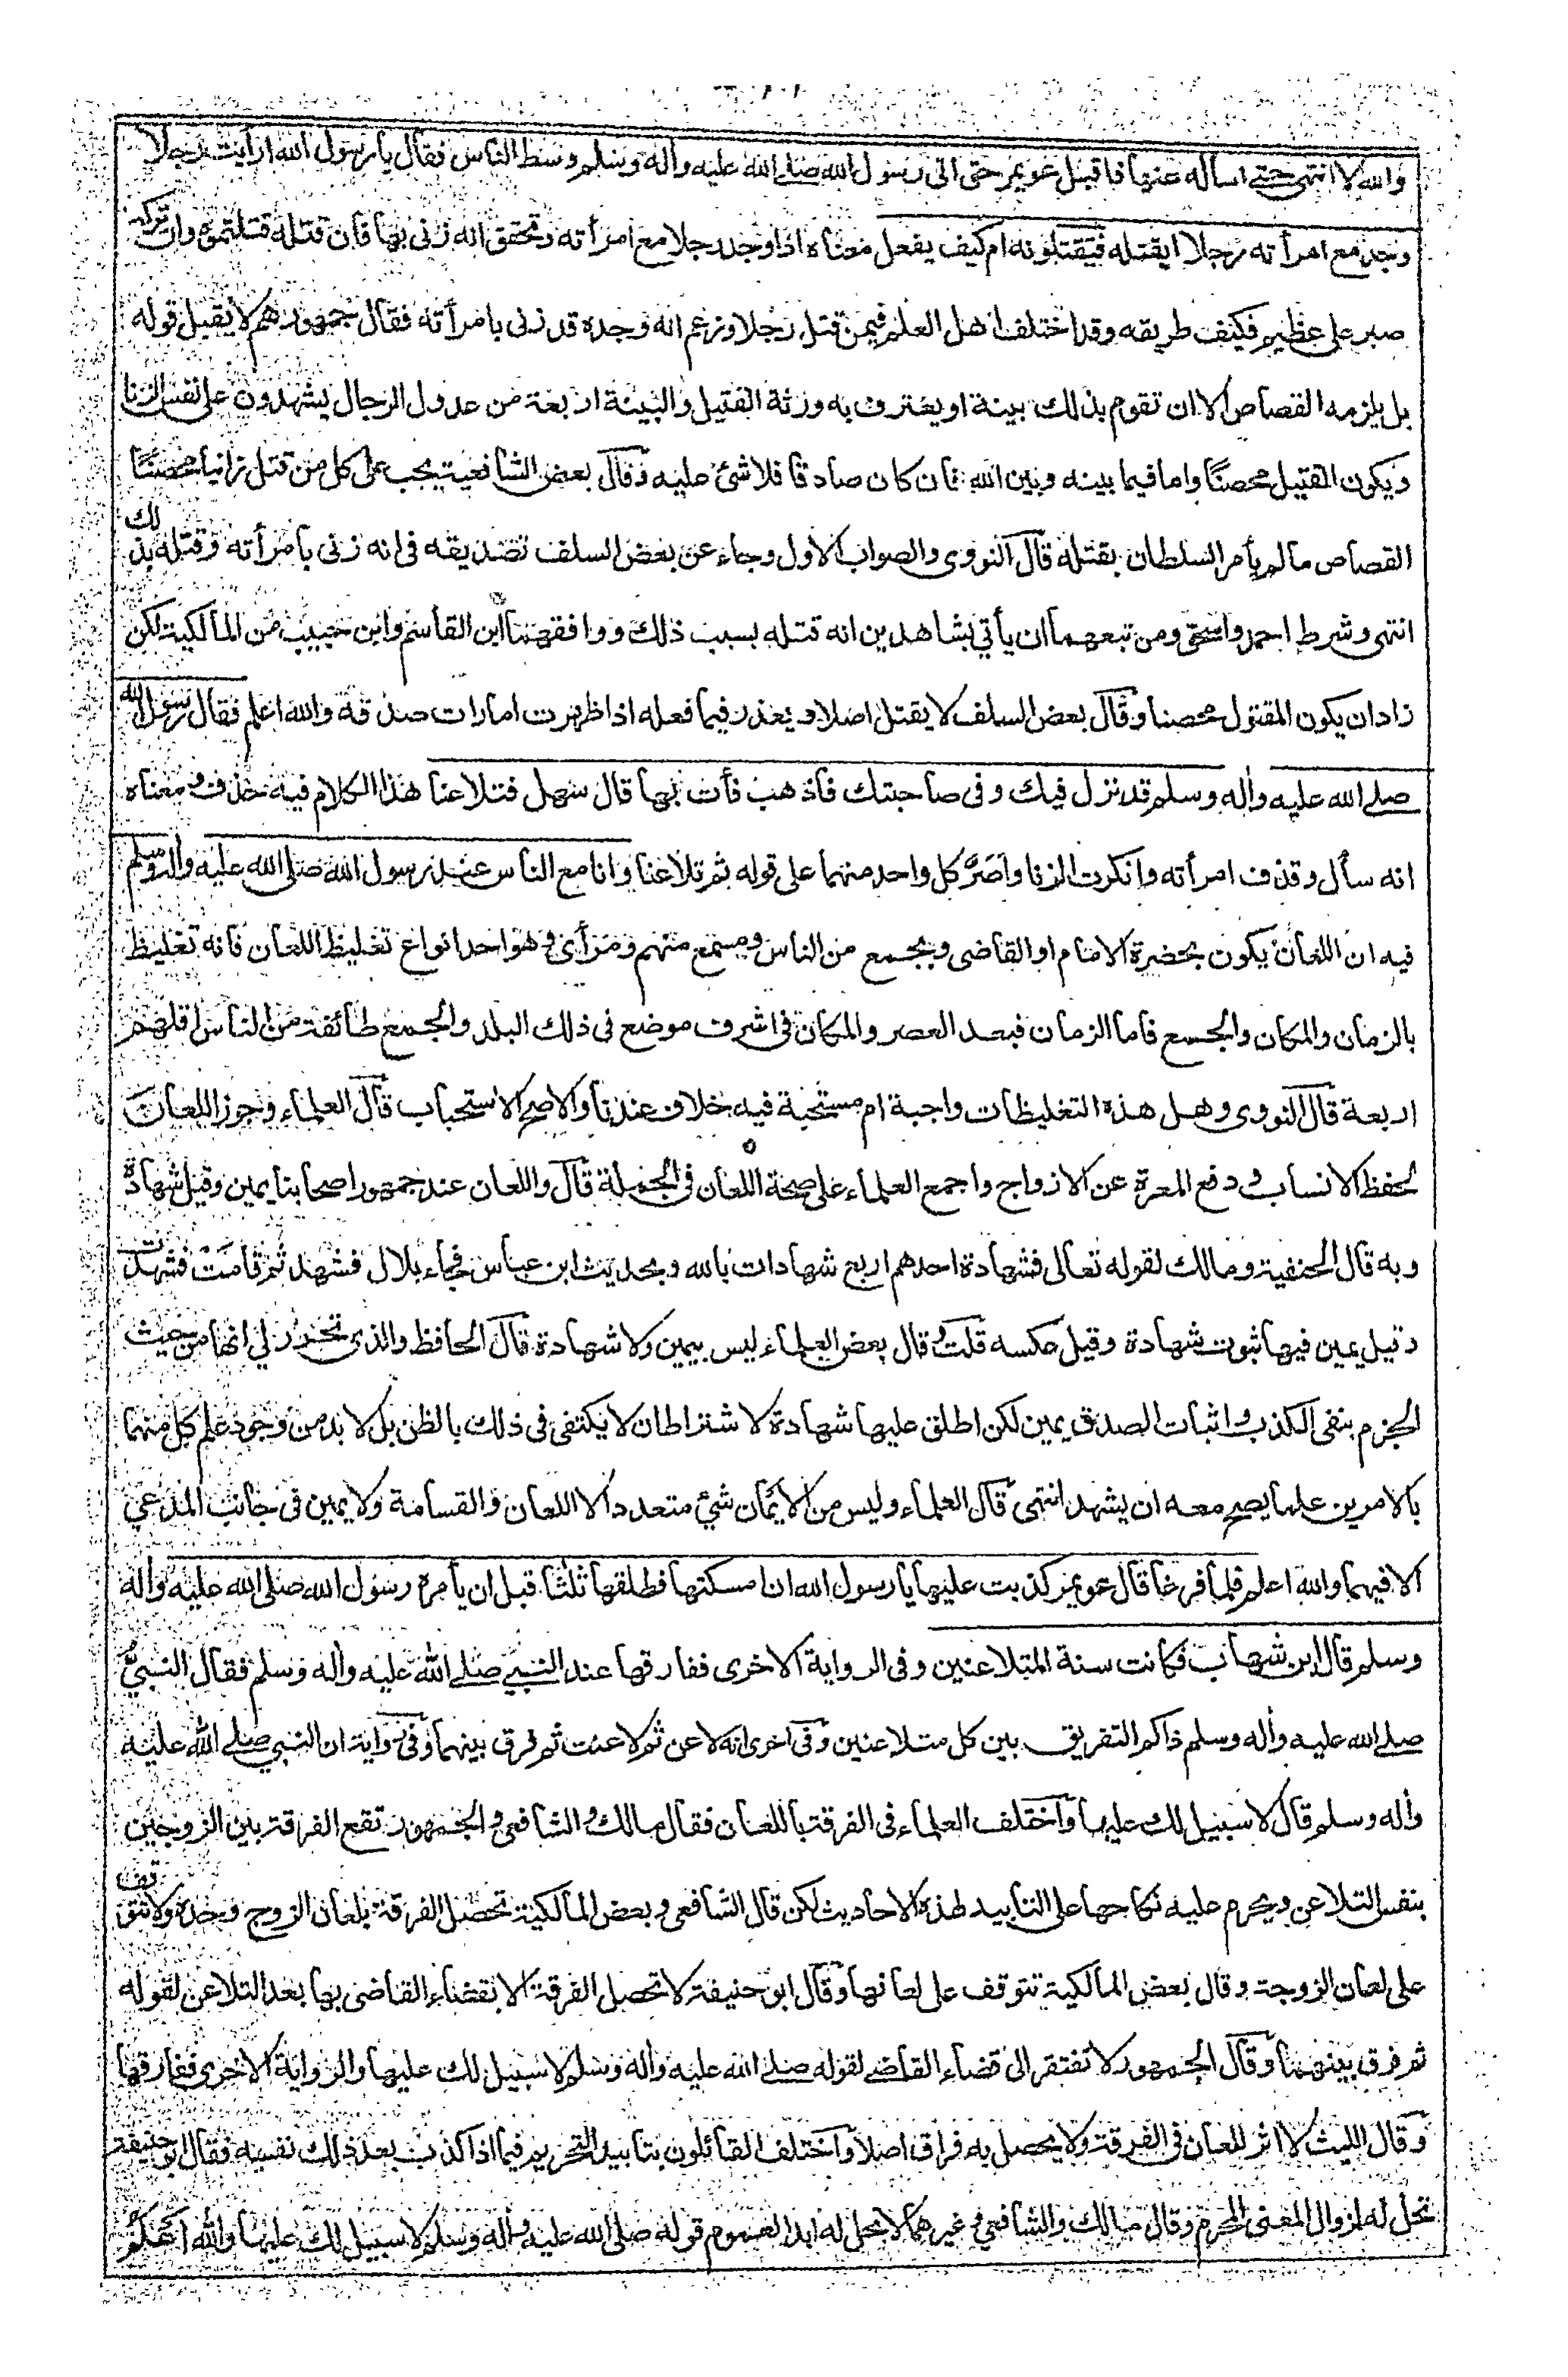 والله لا انتهى حتى اسأله عنها فاقبل عويمر حتى اتى رسول الله صلى الله عليه واله وسلم وسط الناس فقال يا رسول الله ارأيت رجلا
وجد مع امرأته رجلا ايقتله فيقتلونه ام كيف يفعل معناه اذا وجد رجلا مع امرأته وتحقق انه زنى بها فان قتله قتلتموه وان تركه
صبر على عظيم فكيف طريقه وقد اختلف اهل العلم فيمن قتل رجلا وزعم انه وجده قد زنى بامرأته فقال جمهورهم لا يقبل قوله
بل يلزمه القصاص الا ان تقوم بذلك بينة او يعترف به ورثة القتيل والبينة اربعة من عدول الرجال يشهدون على نفس الزنا
ويكون القتيل محصنًا واما فيما بينه وبين الله فان كان صادقا فلا شئ عليه وقال بعض الشافعية يجب على كل من قتل زانيا محصنًا
القصاص ما لم يأمر السلطان بقتله قال النووى والصواب الاول وجاء عن بعض السلف تصديقه فى انه زنى بامرأته وقتله بذلك
انتهى وشرط احمد واسحق ومن تبعهما ان يأتي بشاهدين انه قتله بسبب ذلك ووافقهما ابن القاسم وابن حبيب من المالكية لكن
زاد ان يكون المقتول محصنا وقال بعض السلف لا يقتل اصلا ويعذر فيما فعله اذا ظهرت امارات صدقه والله اعلم فقال رسول الله
صلى الله عليه واله وسلم قد نزل فيك وفى صاحبتك فاذهب فأت بها قال سهل فتلاعنا هذا الكلام فيه حذف ومعناه
انه سأل وقذف امرأته وانكرت الزنا واصَرَّ كل واحد منهما على قوله ثم تلاعنا وانا مع الناس عند رسول الله صلى الله عليه واله وسلم
فيه ان اللعان يكون بحضرة الامام او القاضى وبجمع من الناس ومسمع منهم ومرأى وهو احد انواع تغليظ اللعان فانه تغليظ
بالزمان والمكان والجمع فاما الزمان فبعد العصر والمكان فى اشرف موضع فى ذلك البلد والجمع طائفة من الناس اقلهم
اربعة قال النووى وهل هذه التغليظات واجبة ام مستحبة فيه خلاف عندنا والاصح الاستحباب قال العلماء وجوز اللعان
لحفظ الانساب ودفع المعرة عن الازواج واجمع العلماء على صحة اللعان فى الجملة قال واللعان عند جمهور اصحابنا يمين وقيل شهادة
وبه قال الحنفية ومالك لقوله تعالى فشهادة احدهم اربع شهادات بالله وبحديث ابن عباس فجاء بلال فشهد ثم قامت فشهدت
وقيل يمين فيها ثبوت شهادة وقيل عكسه قلت وقال بعض العلماء ليس بيمين ولا شهادة قال الحافظ والذى تحرر لي انها من حيث
الجزم بنفى الكذب واثبات الصدق يمين لكن اطلق عليها شهادة لاشتراط ان لا يكتفى فى ذلك بالظن بل لا بد من وجود علم كل منهما
بالامرين علما يصح معه ان يشهد انتهى قال العلماء وليس من الايمان شئ متعدد الا اللعان والقسامة ولا يمين فى جانب المدعي
الا فيهما والله اعلم فلما فرغا قال عويمر كذبت عليها يا رسول الله ان امسكتها فطلقها ثلثا قبل ان يأمره رسول الله صلى الله عليه واله
وسلم قال ابن شهاب فكانت سنة المتلاعنين وفى الرواية الاخرى ففارقها عند النبي صلى الله عليه واله وسلم فقال النبيُّ
صلى الله عليه واله وسلم ذاكم التفريق بين كل متلاعنين وفى اخرى انه لاعن ثم لاعنت ثم فرق بينهما وفى رواية ان النبي صلى الله عليه
واله وسلم قال لا سبيل لك عليها واختلف العلماء فى الفرقة باللعان فقال مالك والشافعى والجمهور تقع الفرقة بين الزوجين
بنفس التلاعن ويحرم عليه نكاحها على التابيد لهذه الاحاديث لكن قال الشافعى وبعض المالكية تحصل الفرقة بلعان الزوج وحده ولا تتوقف
على لعان الزوجة وقال بعض المالكية تتوقف على لعانها وقال ابو حنيفة لا تحصل الفرقة الا بقضاء القاضى بها بعد التلاعن لقوله
ثم فرق بينهما وقال الجمهور لا تفتقر الى قضاء القاضى لقوله صلى الله عليه واله وسلم لا سبيل لك عليها والرواية الاخرى ففارقها
وقال الليث لا اثر للعان فى الفرقة ولا يحصل به فراق اصلا واختلف القائلون بتابيد التحريم فيما اذا كذب بعد ذلك نفسه فقال ابو حنيفة
تحل له لزوال المعنى المحرم وقال مالك والشافعى وغيرهما لا تحل له ابدا لعموم قوله صلى الله عليه واله وسلم لا سبيل لك عليها والله اعلم